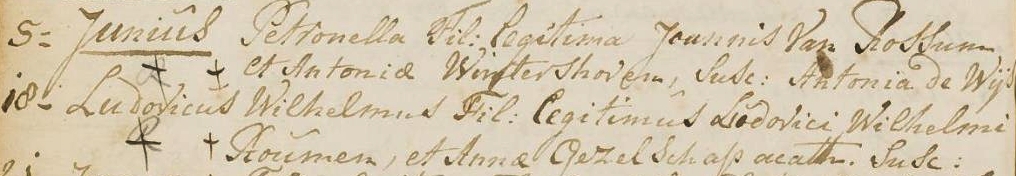 5= Junius Petronella Fil: legitima Joannis Van Rossum
+ + et Antoniæ Wintershoven, Susc: Antonia de Wijs
18- Ludovicus Wilhelmus Fil: legitimus Ludovici Wilhelmi
+ + Roumen, et Annæ Gezelschap acath. Susc: